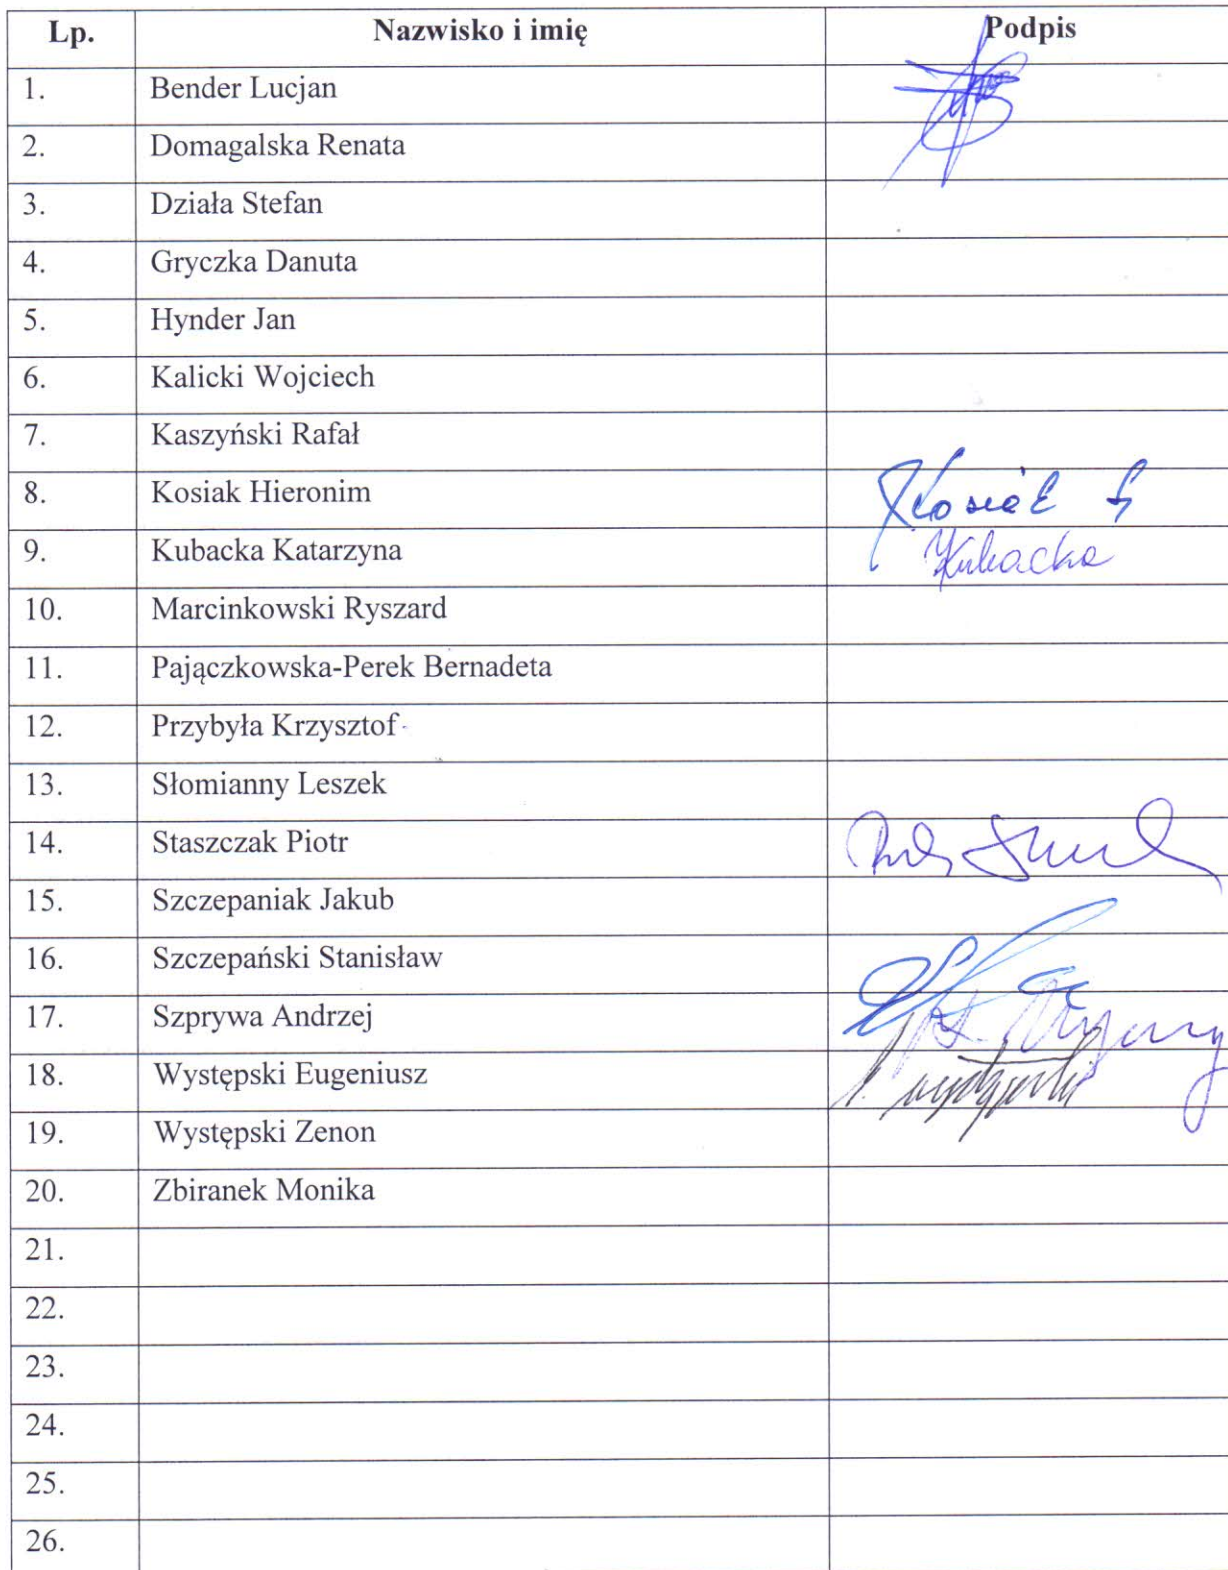 Lp. Nazwisko i imię Podpis
1. Bender Lucjan
2. Domagalska Renata
3. Działa Stefan
4. Gryczka Danuta
5. Hynder Jan
6. Kalicki Wojciech
7. Kaszyński Rafał
8. Kosiak Hieronim Kosiak H
9. Kubacka Katarzyna Kubacka
10. Marcinkowski Ryszard
11. Pajączkowska-Perek Bernadeta
12. Przybyła Krzysztof
13. Słomianny Leszek
14. Staszczak Piotr
15. Szczepaniak Jakub
16. Szczepański Stanisław
17. Szprywa Andrzej
18. Występski Eugeniusz
19. Występski Zenon
20. Zbiranek Monika
21.
22.
23.
24.
25.
26.